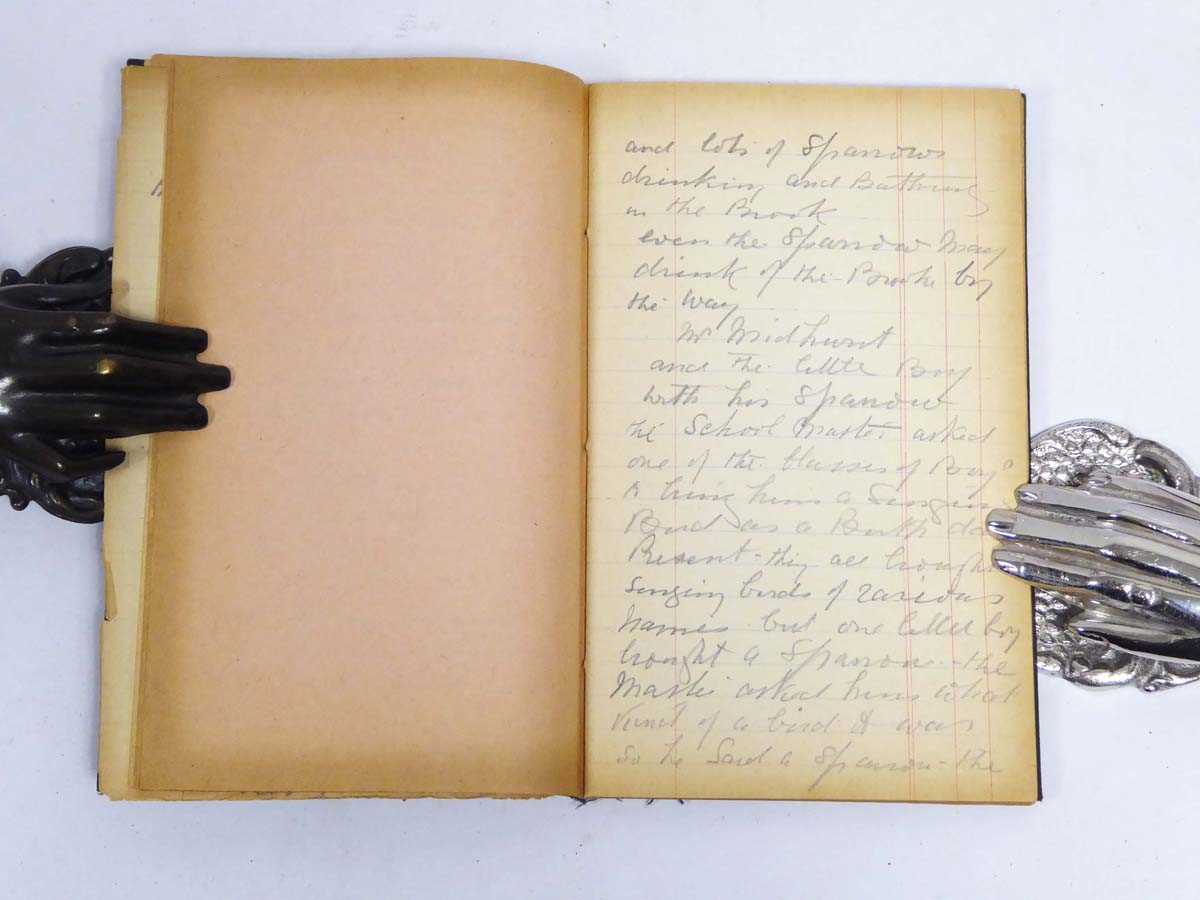 and lots of Sparrows
drinking and Bathing
in the Brook
even the Sparrow May
drink of the Brooke by
the way
Mr Midhurst
and the little Boy
with his Sparrow
the School Master asked
one of the Classes of Boys
to bring him a Singing
Bird as a Birth da
Present - they all brought
Singing birds of various
Names but one little boy
brought a Sparrow - the
Master asked him what
kind of a bird it was
so he Said a Sparrow - the